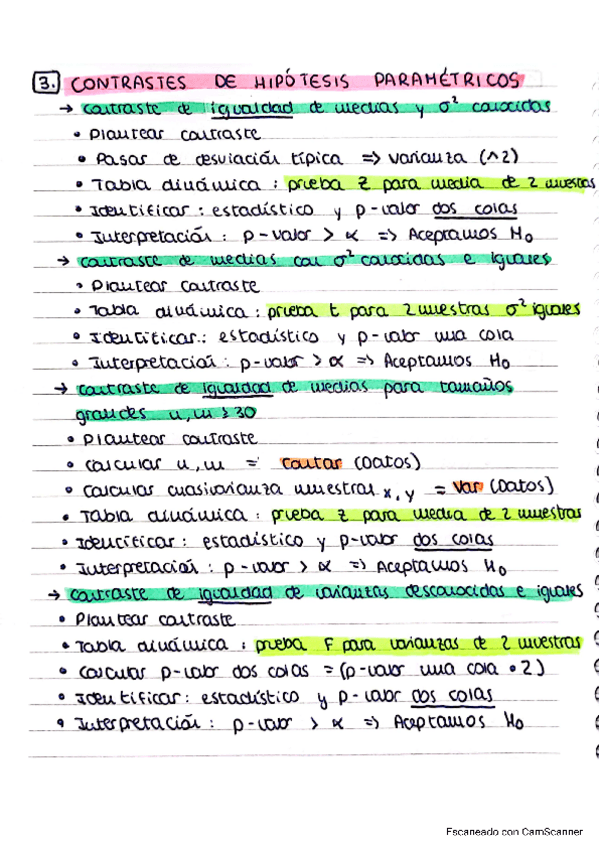 3. CONTRASTES DE HIPÓTESIS PARAMÉTRICOS
→ contraste de igualdad de medias y σ² conocidas
• Plantear contraste
• Pasar de desviación típica => varianza (^2)
• Tabla dinámica : prueba z para media de 2 muestras
• Identificar : estadístico y p-valor dos colas
• Interpretación : p-valor > α => Aceptamos H₀
→ contraste de medias con σ² conocidas e iguales
• Plantear contraste
• Tabla dinámica : prueba t para 2 muestras σ² iguales
• Identificar : estadístico y p-valor una cola
• Interpretación : p-valor > α => Aceptamos H₀
→ contraste de igualdad de medias para tamaños
grandes n, m ≥ 30
• Plantear contraste
• Calcular n, m = contar (Datos)
• Calcular cuasivarianza muestras x, y = var (Datos)
• Tabla dinámica : prueba z para media de 2 muestras
• Identificar : estadístico y p-valor dos colas
• Interpretación : p-valor > α => Aceptamos H₀
→ contraste de igualdad de varianzas desconocidas e iguales
• Plantear contraste
• Tabla dinámica : prueba F para varianzas de 2 muestras
• Calcular p-valor dos colas = (p-valor una cola • 2)
• Identificar : estadístico y p-valor dos colas
• Interpretación : p-valor > α => Aceptamos H₀
Escaneado con CamScanner